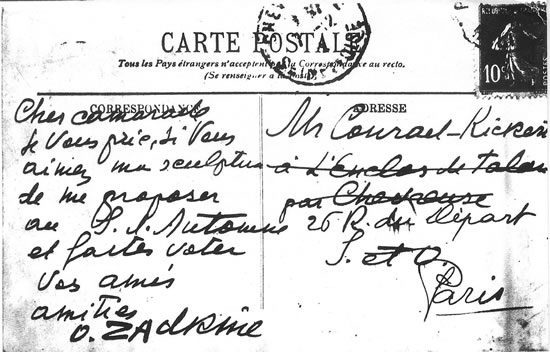 CARTE POSTALE
Tous les Pays étrangers n'acceptent pas la Correspondance au recto.
(Se renseigner à la Poste).
CORRESPONDANCE
Cher camarade
Je vous prie, si vous
aimez ma sculpture
de me proposer
au S. d'Automne
et faites voter
vos amis
amitiés
O. ZAdKine
ADRESSE
Mr Conrad-Kickert
à l'Enclos de
par Chevreuse
26 R. du Départ
S. et O.
Paris
10